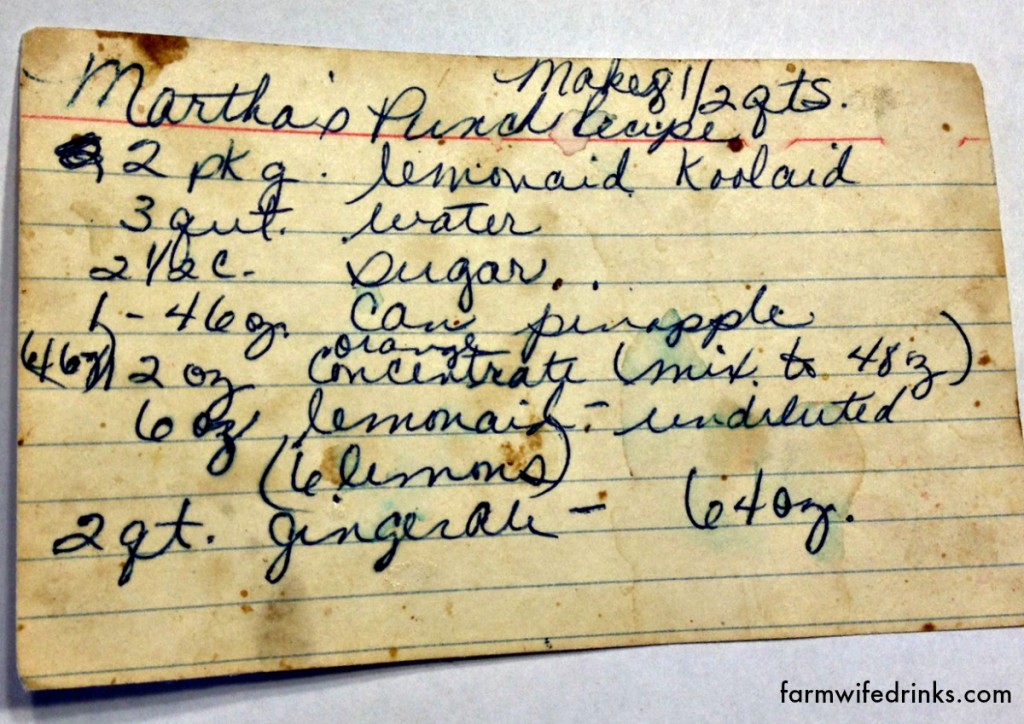 Makes 1/2 qts.
Martha's Punch Recipe
2 pkg. lemonaid Koolaid
3 qut. water
2 1/2 c. sugar
1 - 46 oz. can pineapple
orange
2 oz concentrate (mix to 48 oz)
6 oz lemonaid - undiluted
(6 lemons)
2 qt. gingerale - 64 oz.
farmwifedrinks.com